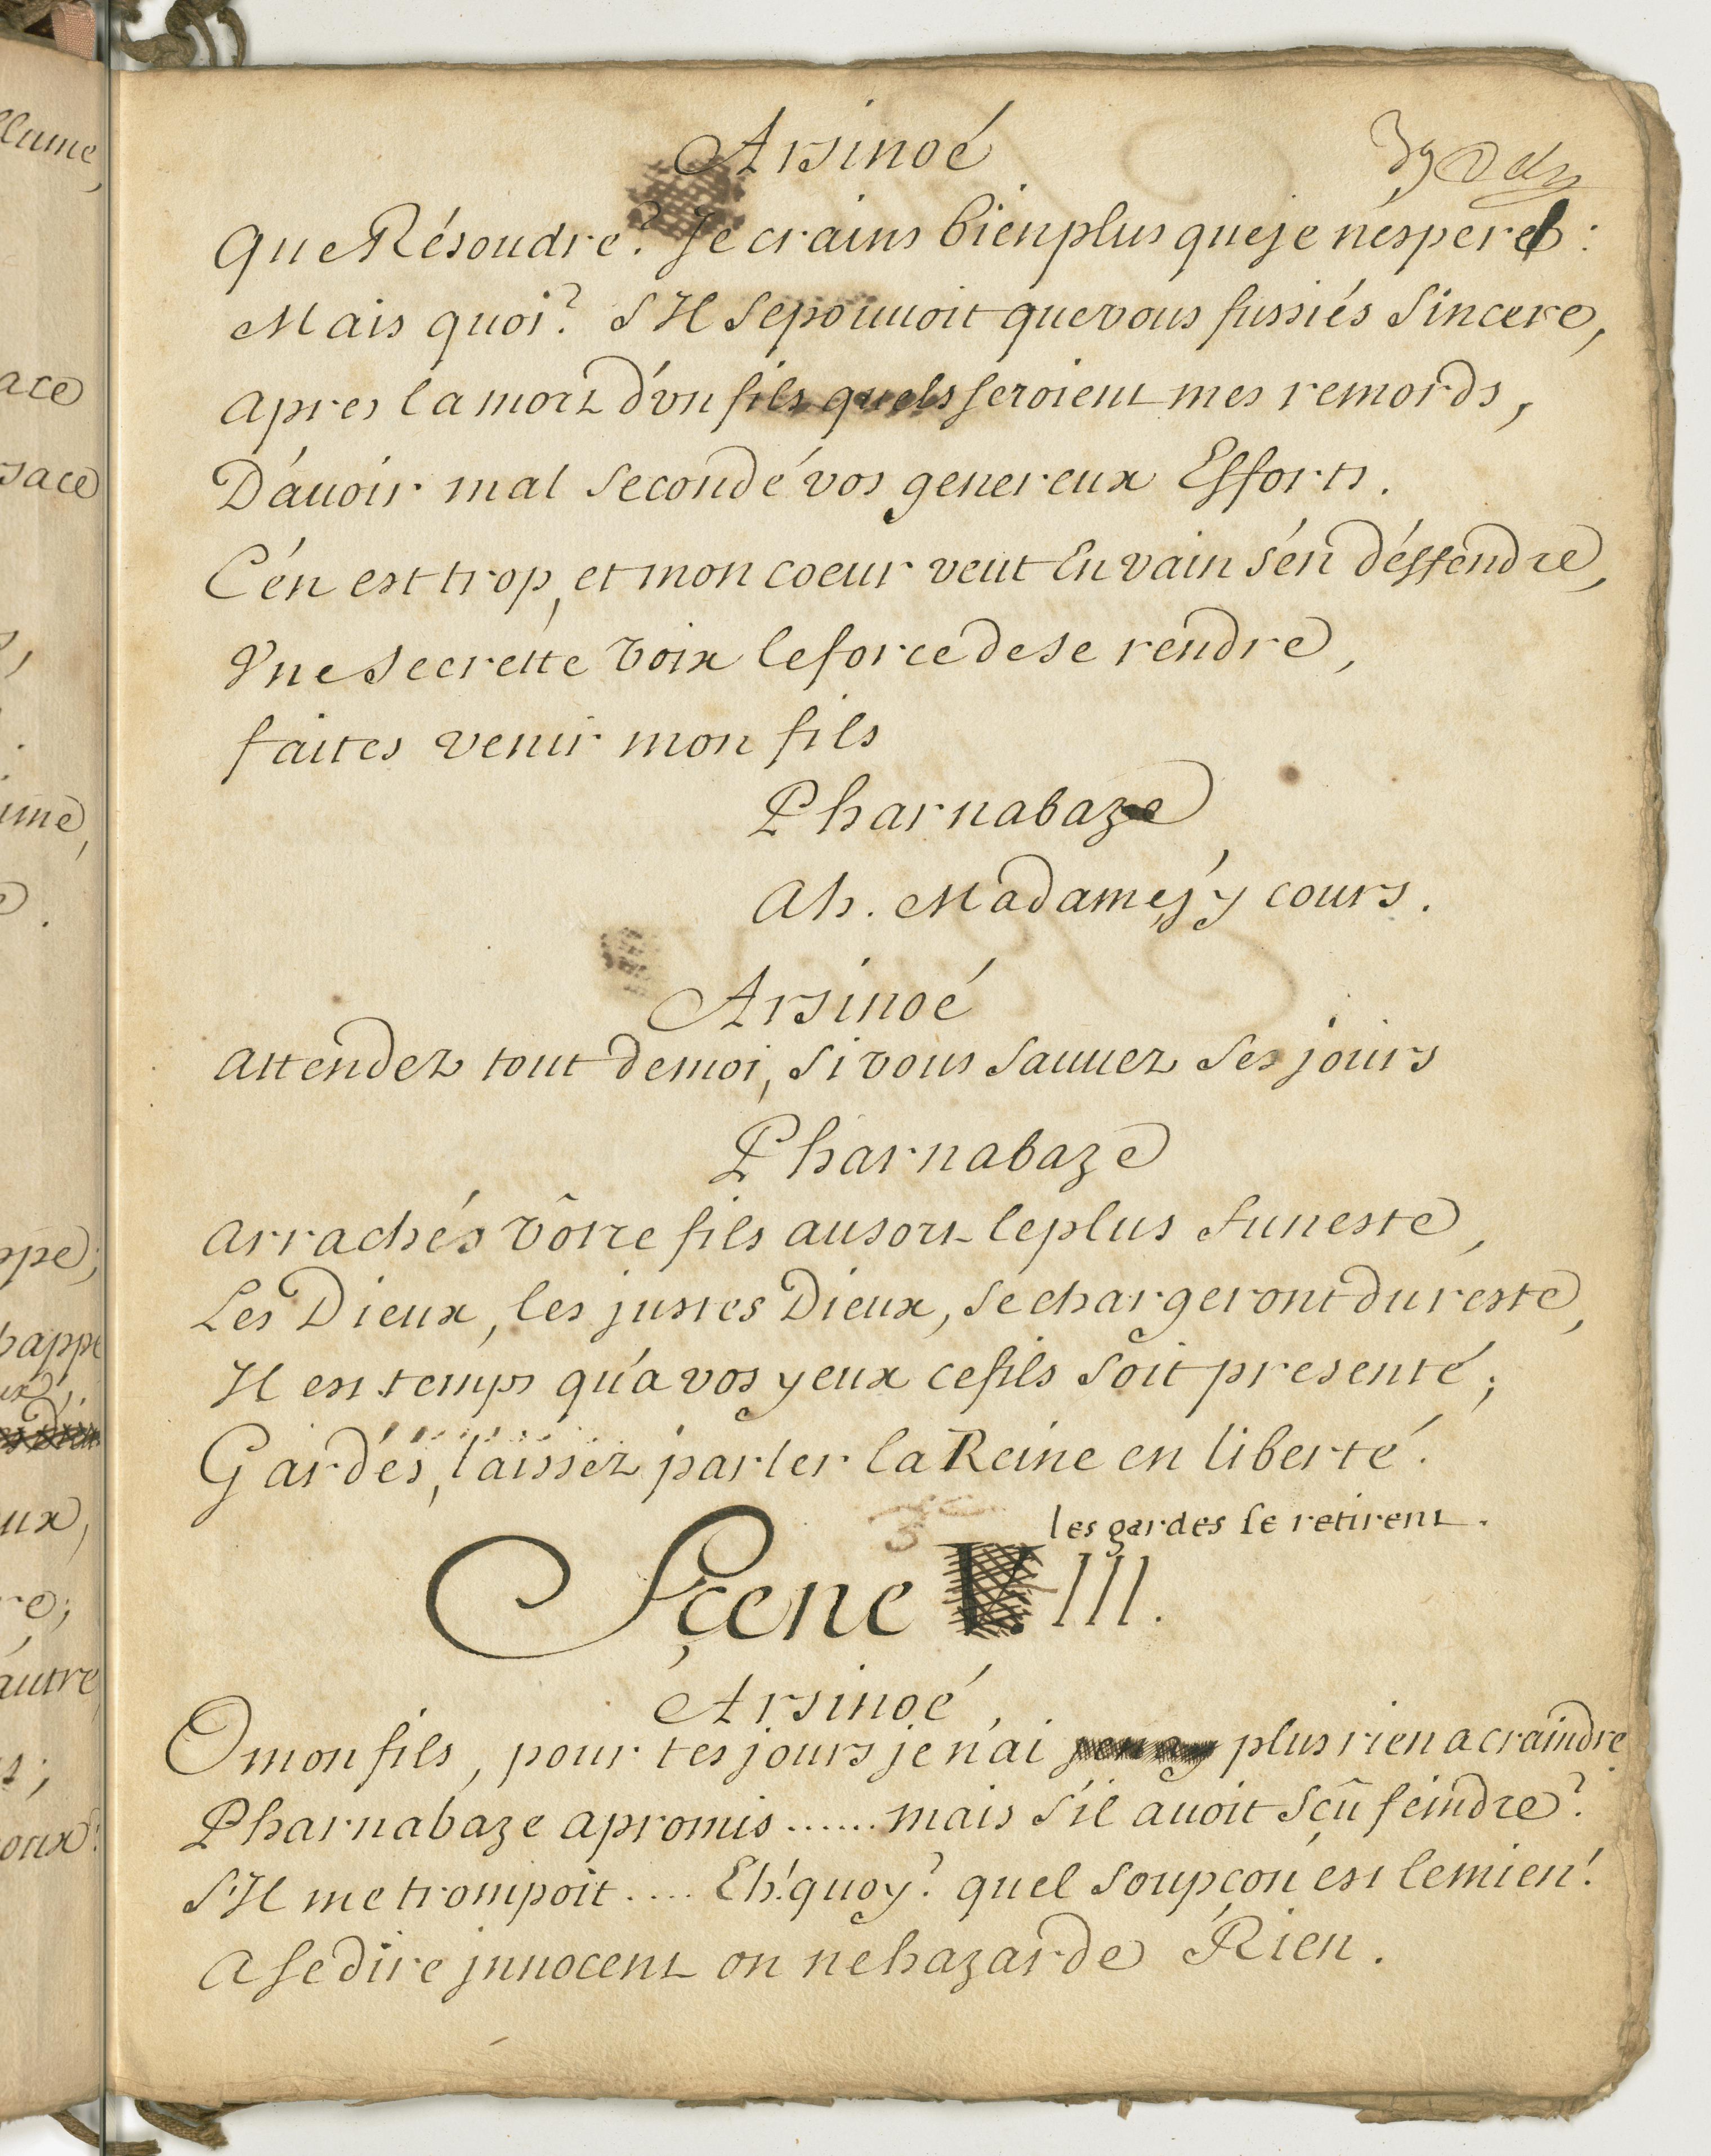 Arsinoé
39
Que Résoudre? Je crains bien plus que je n'espere :
Mais quoi? S'Il se pouuoit que vous fussiés Sincere,
apres la mort d'vn fils quels seroient mes remords,
D'auoir mal secondé vos genereux Efforts.
C'en est trop, et mon coeur veut En vain s'en deffendre,
Vne secrette voix le force de se rendre,
faites venir mon fils
Pharnabaze
Ah. Madame, j'y cours.
Arsinoé
attendez tout de moi, si vous sauuez ses jours
Pharnabaze
arrachés vôtre fils au sort le plus funeste,
Les Dieux, les justes Dieux, se chargeront du reste,
Il est temps qu'a vos yeux ce fils soit presenté;
Gardes, laissez parler la Reine en liberté.
les gardes se retirent.
Sçene III.
Arsinoé
O mon fils, pour tes jours je n'ai plus rien a craindre
Pharnabaze a promis ...... mais s'il auoit sçû feindre?
S'Il me trompoit .... Eh! quoy? quel soupçon est le mien!
a se dire jnnocent on ne hazarde Rien.
ace
sace
ume,
ppe;
happe
ux,
re;
autre